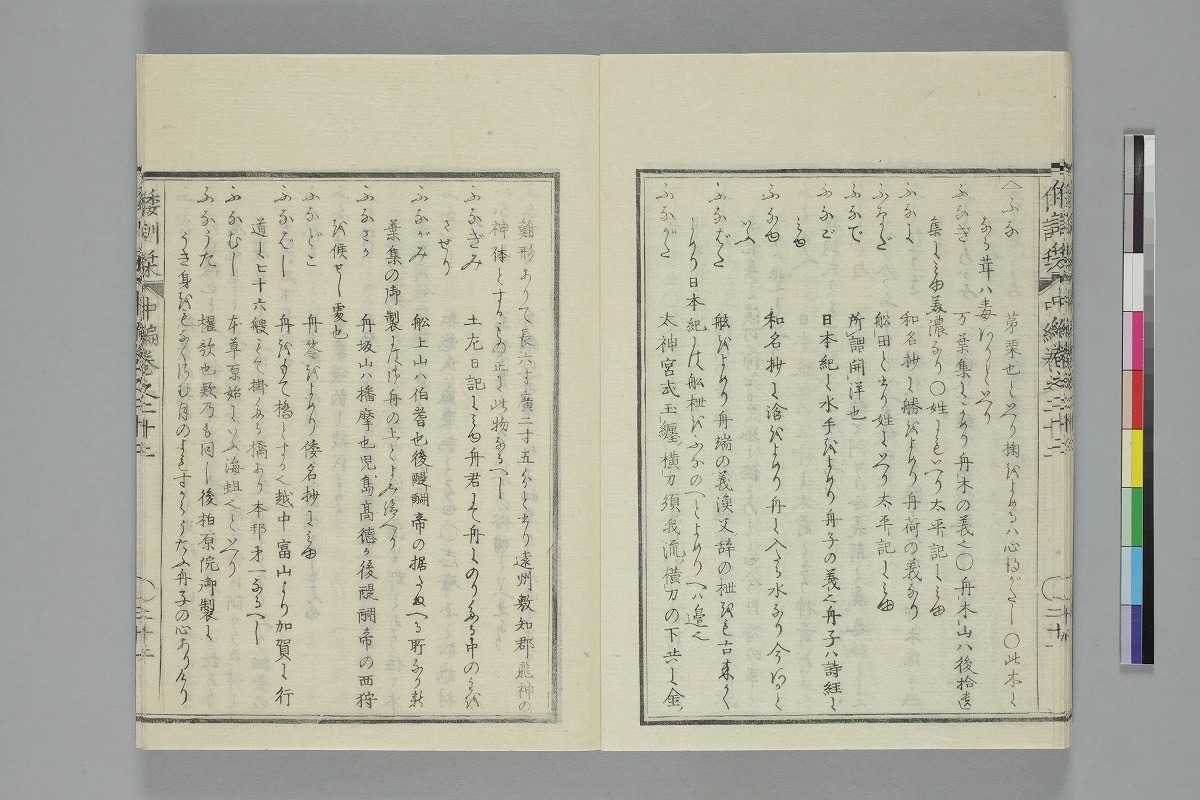 ふな 第栗也といへり 掬をよめるハ心得がたし 〇此木に
なる茸ハ毒ありといへり
ふなぎ 万葉集によめり舟木の義也〇舟木山ハ後拾遺
集にみゆ美濃なり〇姓にもいへり太平記にみゆ
ふなに 和名抄に艕をよめり舟荷の義なり
ふなだ 舩田と書り姓にいへり太平記にみゆ
ふなで 所謂開洋也
ふなご 日本紀に水手をよめり舟子の義也舟子ハ詩経に
みゆ
ふなゆ 和名抄に淦をよめり舟に入たる水なり今あかと
いふ
ふなばた 舷をよめり舟端の義漁父辞の枻をも古来かく
よめり日本紀にハ舩枻をふなのへとよめりへハ邉也
ふながた 太神宮式玉纏横刀須我流横刀の下共に金
鮒形ありて長六寸廣二寸五分と書り遠州敷知郡 神の
神体とするもの正に此物なるへし
ふなぎみ 土左日記にみゆ舟君にて舟にのりたる中のきミを
させり
ふながみ 舩上山ハ伯耆也後醍醐帝の据たまへる所なり新
葉集の御製にハ舟の上とよみ給へり
ふなさか 舟坂山ハ播摩也児島髙徳か後醍醐帝の西狩
を候せし處也
ふなどこ 舟笭をよめり倭名抄にみゆ
ふなばし 舟をもて橋とする也越中富山より加賀へ行
道に七十六艘にて掛たる橋あり本邦才一なるへし
ふなむし 本草原始にいふ海蛆也といへり
ふなうた 櫂歌也欵乃も同し後柏原院御製に
うき身をもなくさむ月のよもすからうたふ舟子の心ありけり
倭訓栞 中編巻之二十二